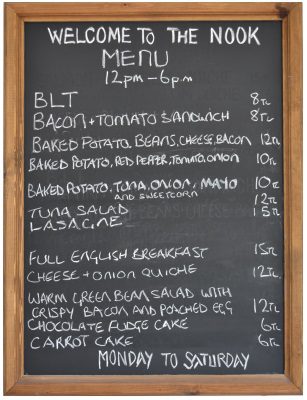 WELCOME TO THE NOOK
MENU
12pm-6pm
BLT 8TL
BACON + TOMATO SANDWICH 8TL
BAKED POTATO, BEANS, CHEESE, BACON 12TL
BAKED POTATO, RED PEPPER, TOMATO, ONION 10TL
BAKED POTATO, TUNA, ONION, MAYO 10TL
AND SWEETCORN
TUNA SALAD 12TL
LASAGNE 15TL
FULL ENGLISH BREAKFAST 15TL
CHEESE + ONION QUICHE 12TL
WARM GREEN BEAN SALAD WITH
CRISPY BACON AND POACHED EGG 12TL
CHOCOLATE FUDGE CAKE 6TL
CARROT CAKE 6TL
MONDAY TO SATURDAY